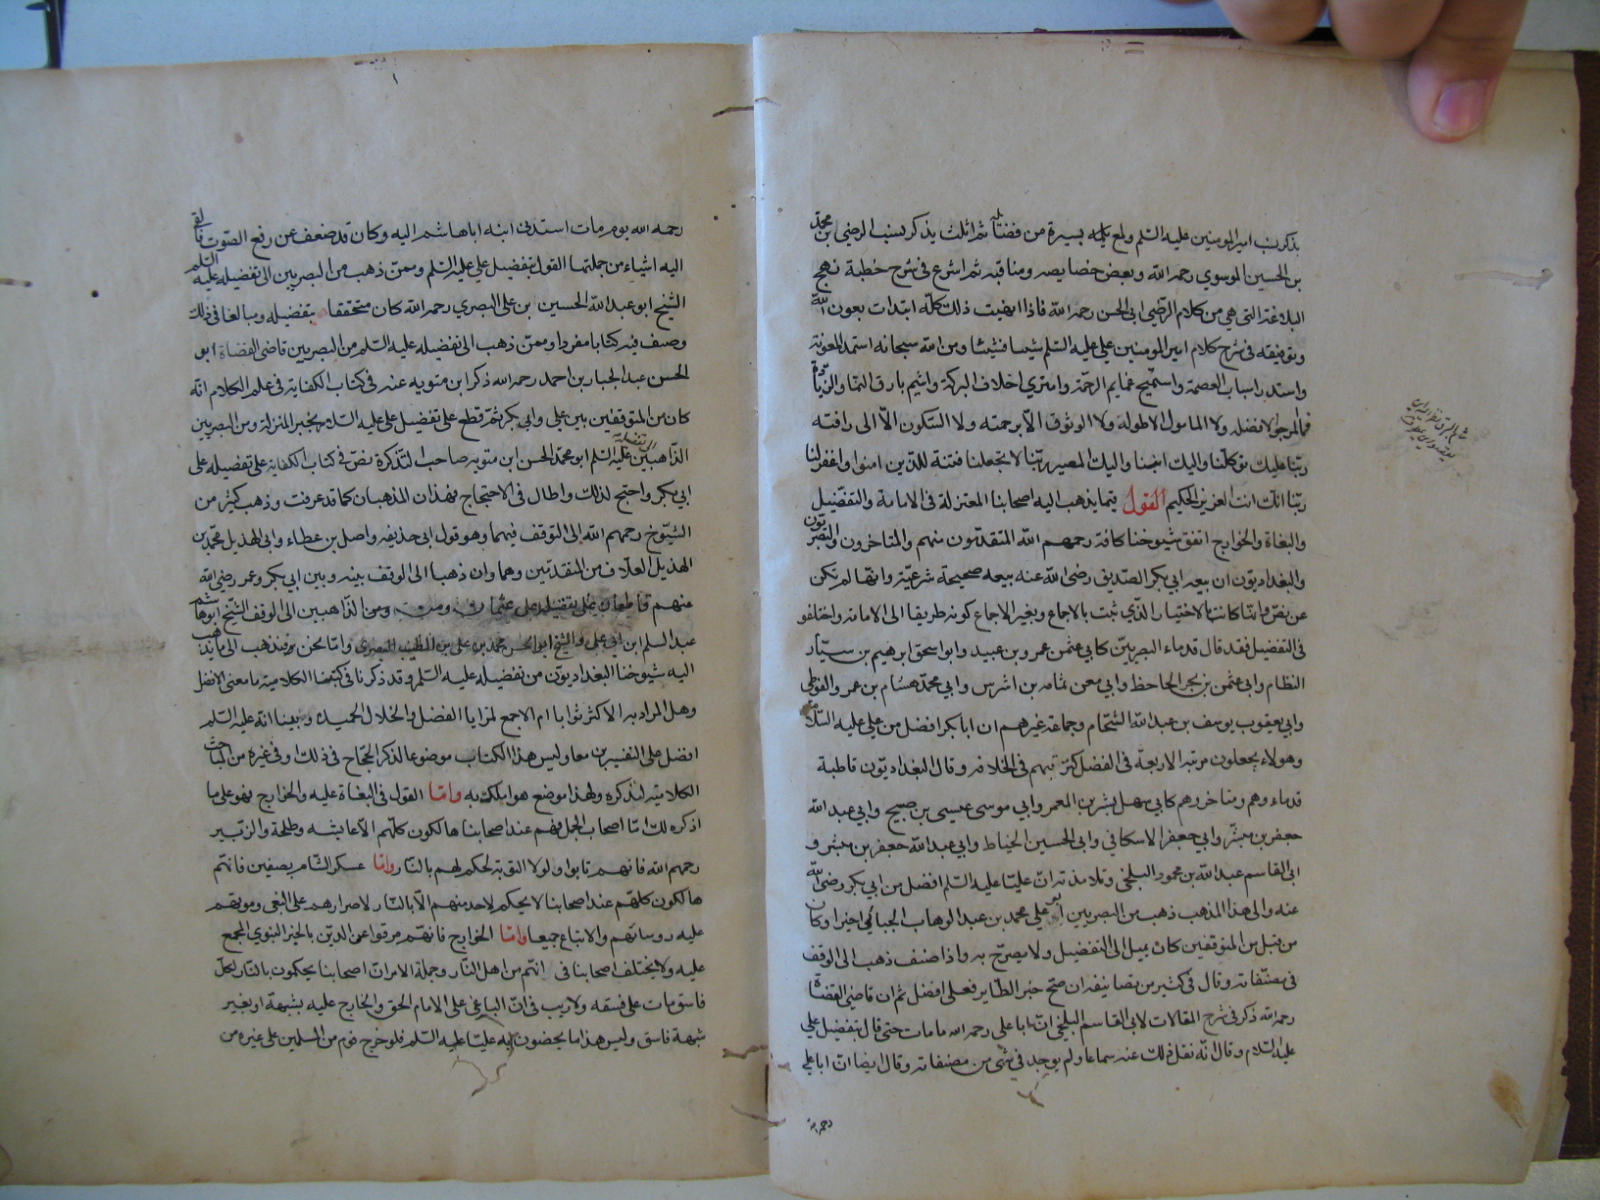 بذكر نسب امير المومنين عليه السلم ولمع يسيرة من فضائله ثم اثلث بذكر نسب الرضى محمد بن
بن الحسين الموسوي رحمه الله وبعض خصايصه ومناقبه ثم اشرع فى شرح خطبة نهج
البلاغة التى هى من كلام الرضى ابى الحسن رحمه الله فاذا انهيت ذلك كله ابتدات بعون الله
وتوفيقه فى شرح كلام امير المومنين على عليه السلم شيئا فشيئا ومن الله سبحانه استمد المعونة
واستدر اسباب العصمة واستميح غمايم الرحمة وامترى اخلاف البركة واشيم بارق النما والزيادة
فما المرجو الا فضله ولا المامول الا طوله ولا الوثوق الا برحمته ولا السكون الا الى رافته
ربنا عليك توكلنا واليك انبنا واليك المصير ربنا لا تجعلنا فتنة للذين امنوا واغفر لنا
ربنا انك انت العزيز الحكيم القول فيما يذهب اليه اصحابنا المعتزلة فى الامامة والتفضيل
والبغاة والخوارج اتفق شيوخنا كافة رحمهم الله المتقدمون منهم والمتاخرون والبصريون
والبغداديون ان بيعه ابي بكر الصديق رضى الله عنه بيعه صحيحة شرعية وانها لم تكن
عن نص وانما كانت بالاختيار الذى ثبت بالاجماع وبغير الاجماع كونه طريقا الى الامامة واختلفو
فى التفضيل فقد قال قدماء البصريين كابى عثمن عمرو بن عبيد وابو اسحق ابرهيم بن سيار
النظام وابى عثمن بن بحر الجاحظ وابي معن ثمامه بن اشرس وابي محمد هشام بن عمرو الفوطى
وابي يعقوب يوسف بن عبد الله الشحام وجماعة غيرهم ان ابا بكر افضل من على عليه السلام
وهولاء يجعلون مرتبة الاربعة فى الفضل كترتبهم فى الخلافة وقال البغداديون قاطبة
قدماءوهم ومتاخروهم كابى سهل بشر بن المعمر وابي موسى عيسى بن صبيح وابي عبد الله
جعفر بن مبشر وابي جعفر الاسكافي وابي الحسين الخياط وابي عبد الله جعفر بن مبشر و
ابى القاسم عبد الله بن محمود البلخى وتلامذته ان عليا عليه السلم افضل من ابي بكر رضى الله
عنه والى هذا المذهب ذهب من البصريين ابو على محمد بن عبد الوهاب الجبائى اخيرا وكان
من قبل من المتوقفين كان يميل الى التفضيل ولا يصرح به واذا صنف ذهب الى الوقف
فى مصنفاته وقال فى كثير من تصانيفه ان صح خبر الطاير فعلى افضل ثم ان قاضى القضاة
رحمه الله ذكر فى شرح المقالات لابى القاسم البلخى ان ابا على رحمه الله ما مات حتى قال بتفضيل على
عليه السلام وقال انه نقل ذلك عنه سماعا ولم يوجد فى شى من مصنفاته وقال ايضا ان ابا على
رحمه الله
رحمه الله يوم مات استدنى ابنه اباهاشم اليه وكان قد ضعف عن رفع الصوت فالقى
اليه اشياء من جملتها القول بتفضيل على عليه السلم وممن ذهب من البصريين الى تفضيله عليه السلم
الشيخ ابو عبد الله الحسين بن على البصري رحمه الله كان متحققا بتفضيله ومبالغا فى ذلك
وصنف فيه كتابا مفردا وممن ذهب الى تفضيله عليه السلم من البصريين قاضى القضاة ابو
الحسن عبد الجبار بن احمد رحمه الله ذكر ابن متويه عنه فى كتاب الكفاية فى علم الكلام انه
كان من المتوقفين بين على وابي بكر ثم قطع على تفضيل على عليه السلام بخبر المنزلة ومن البصريين
الذاهبين الى تفضيله عليه السلم ابو محمد الحسن ابن متويه صاحب التذكرة نص فى كتاب الكفاية على تفضيله على
ابي بكر واحتج لذلك واطال فى الاحتجاج فهذان المذهبان كما قد عرفت وذهب كثير من
الشيوخ رحمهم الله الى التوقف فيهما وهو قول ابى حذيفه واصل بن عطاء وابى الهذيل محمد بن
الهذيل العلاف من المتقدمين وهما وان ذهبا الى الوقف بينه وبين ابي بكر وعمر رضى الله
عنهم قاطعان على تفضيله على عثمان ومن الذاهبين الى الوقف الشيخ ابو هاشم
عبد السلم ابن ابى على والشيخ ابو الحسن محمد بن على بن الطيب البصرى واما نحن فنذهب الى ما يذهب
اليه شيوخنا البغداديون من تفضيله عليه السلم وقد ذكرنا فى كتبنا الكلامية ما معنى الافضل
وهل المراد به الاكثر ثوابا ام الاجمع لمزايا الفضل والخلال الحميدة وبينا انه عليه السلم
افضل على التفسيرين معا وليس هذا الكتاب موضوعا لذكر الحجاج فى ذلك او فى غيره من المباحث
الكلامية لنذكره ولهذا موضع هو املك به واما القول فى البغاة عليه والخوارج فهو على ما
اذكره لك اما اصحاب الجمل فهم عند اصحابنا هالكون كلهم الا عايشه وطلحة والزبير
رحمهم الله فانهم تابوا ولولا التوبة لحكم لهم بالنار واما عسكر الشام بصفين فانهم
هالكون كلهم عند اصحابنا لا يحكم لاحد منهم الا بالنار لاصرارهم على البغى وموتهم
عليه روساءهم والاتباع جميعا واما الخوارج فانهم مرقوا عن الدين بالخبر النبوي المجمع
عليه ولا يختلف اصحابنا فى انهم من اهل النار وجملة الامر ان اصحابنا يحكمون بالنار لكل
فاسق مات على فسقه ولا ريب فى ان الباغى على الامام الحق والخارج عليه بشبهة او بغير
شبهة فاسق وليس هذا ما يخصون به عليا عليه السلم فلو خرج قوم من المسلمين على غيره من